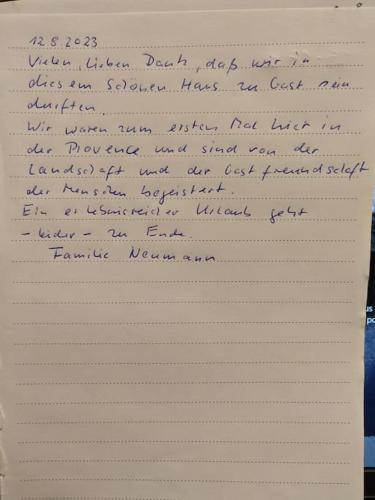 12.8.2023
Vielen, lieben Dank, daß wir in
diesem schönen Haus zu Gast sein
durften.
Wir waren zum ersten Mal hier in
der Provence und sind von der
Landschaft und der Gastfreundschaft
der Menschen begeistert.
Ein erlebnisreicher Urlaub geht
- leider - zu Ende.
Familie Neumann